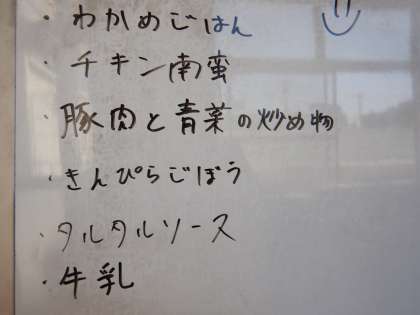 ・わかめごはん
・チキン南蛮
・豚肉と青菜の炒め物
・きんぴらごぼう
・タルタルソース
・牛乳